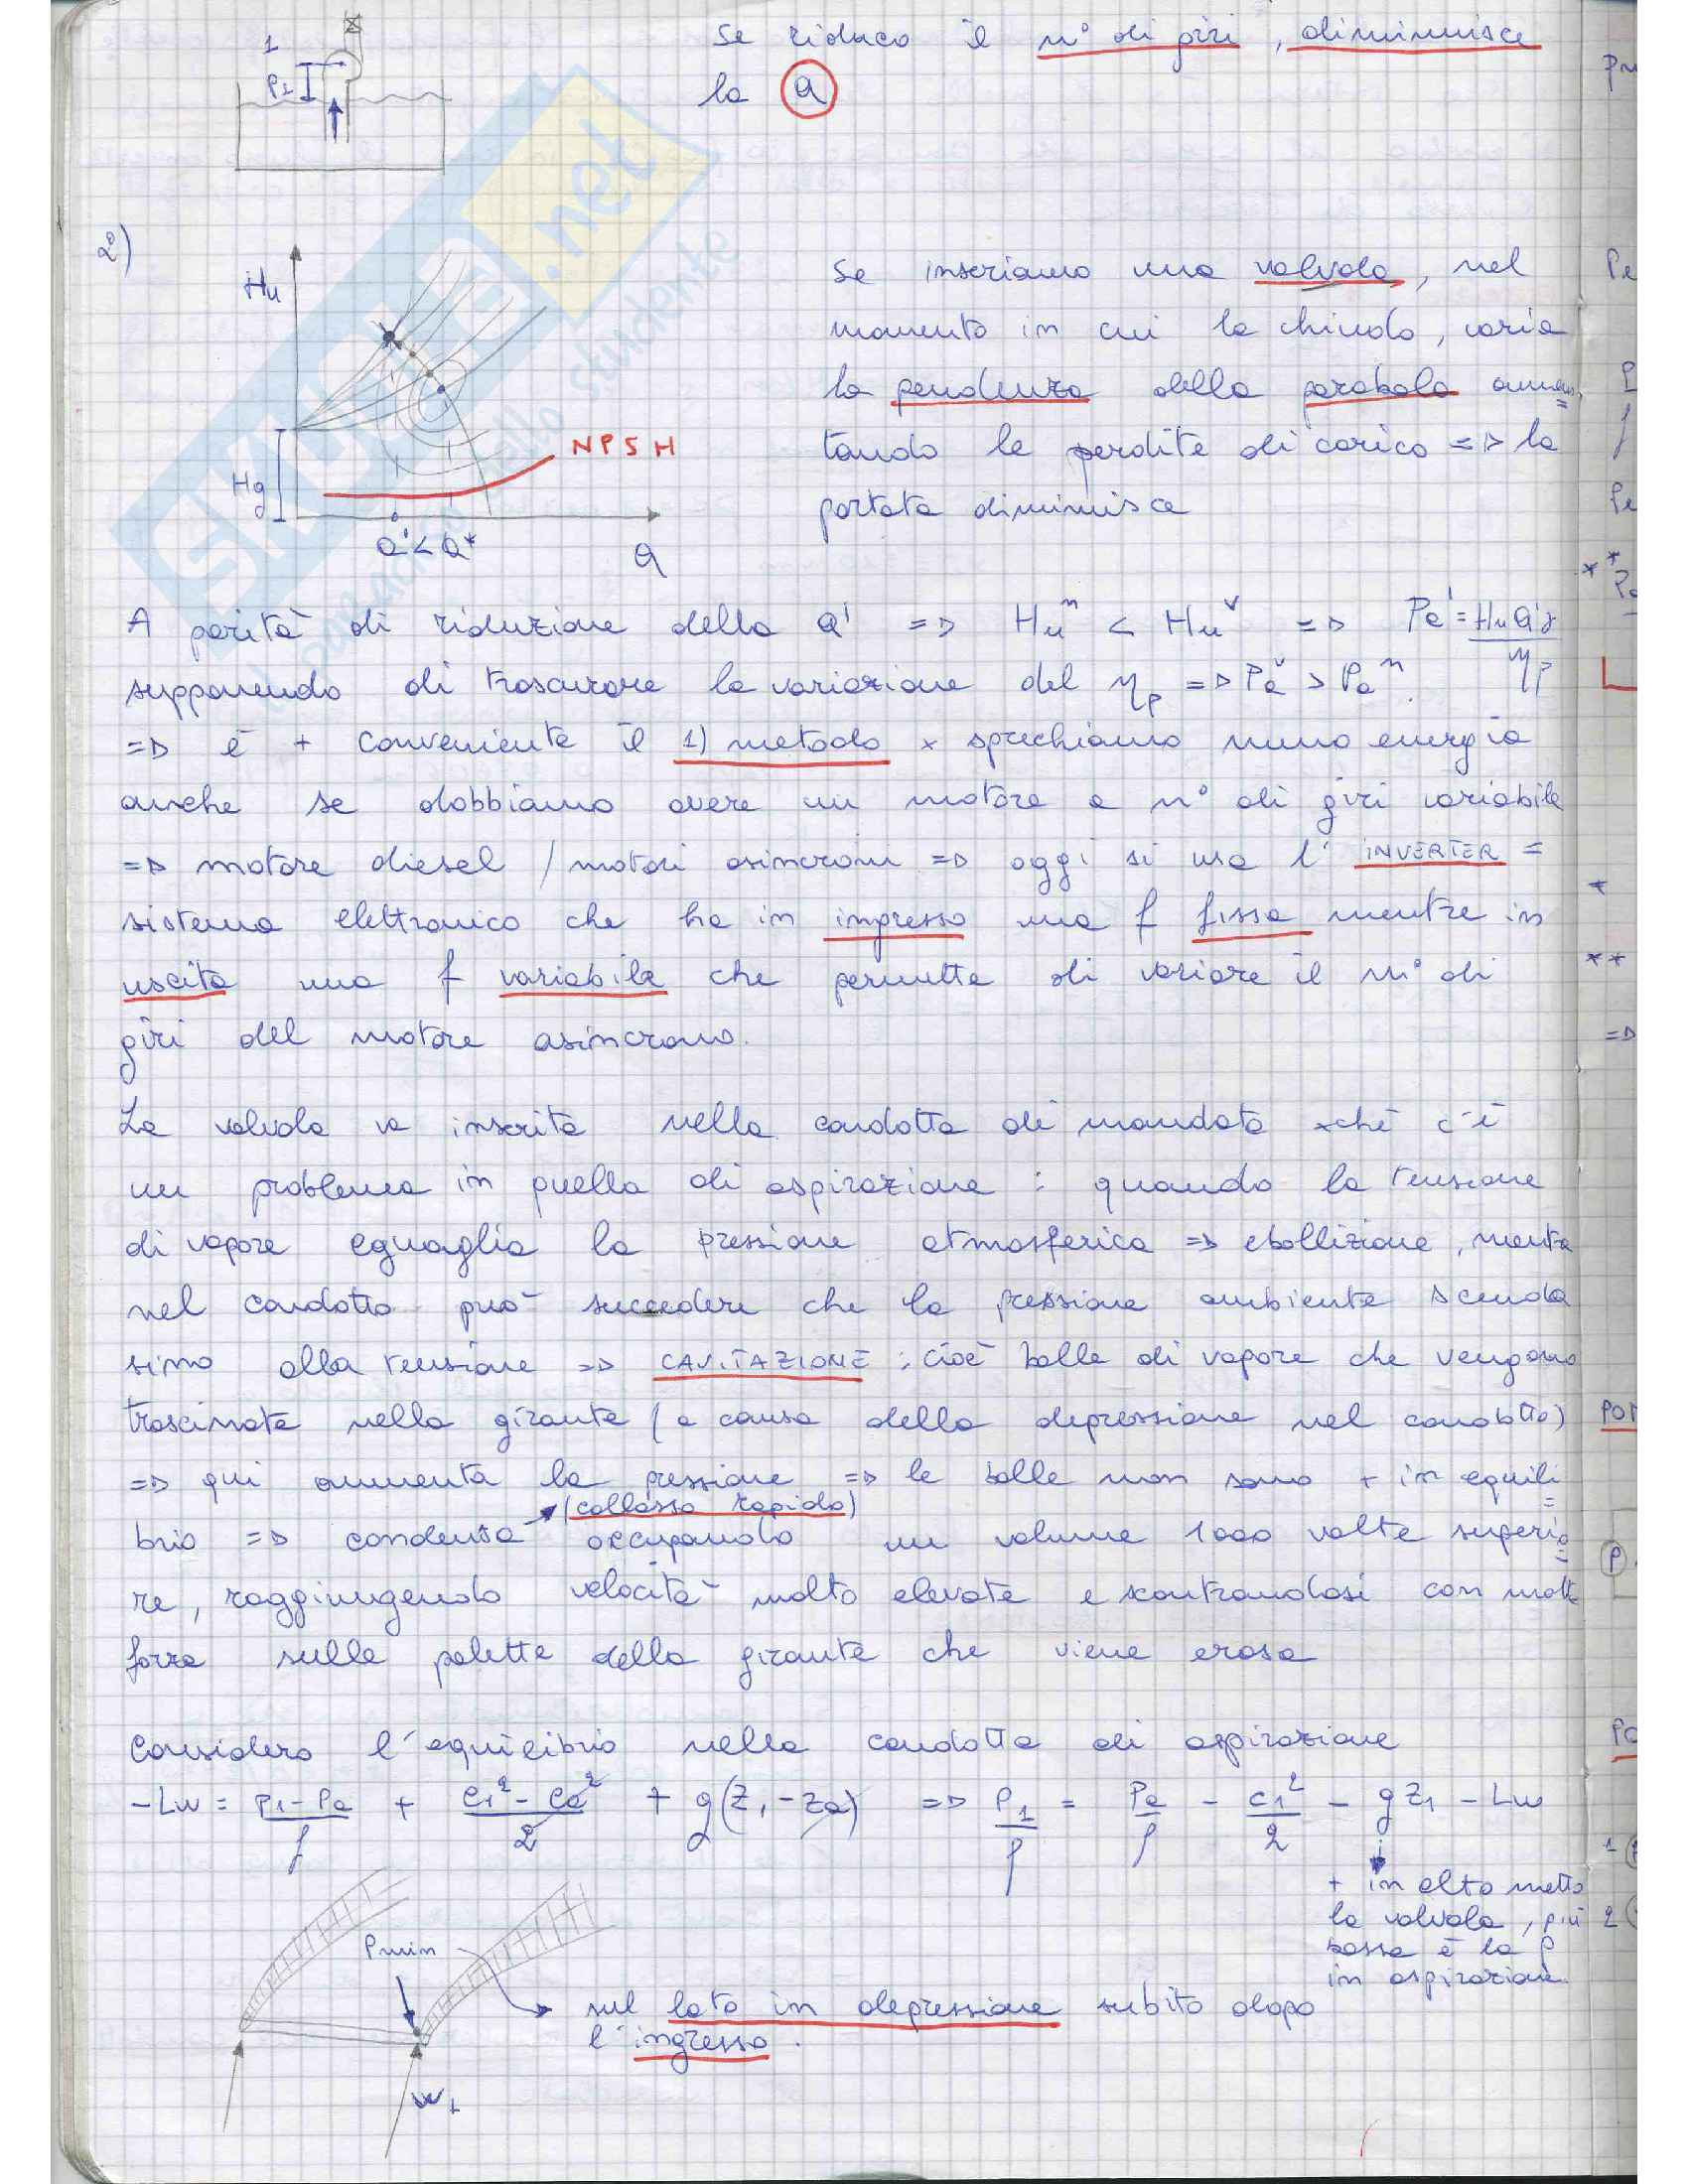 Se riduco il n° di giri, diminuisce
la Q
1
P1
2°)
Hu
Hg
NPSH
Q' < Q*
Q
Se inseriamo una valvola, nel
momento in cui la chiudo, varia
la pendenza della parabola aumen=
tando le perdite di carico => la
portata diminuisce
A parità di riduzione della Q' => Hu^n < Hu^v => Pa' = HuQ'γ / ηp
supponendo di trascurare la variazione del ηp => Pa^v > Pa^n.
=> è + conveniente il 1) metodo x sprechiamo meno energia
anche se dobbiamo avere un motore a n° di giri variabile
=> motore diesel / motori asincroni => oggi si usa l' INVERTER =
sistema elettronico che ha in ingresso una f fissa mentre in
uscita una f variabile che permette di variare il n° di
giri del motore asincrono.
La valvola va inserita nella condotta di mandata xché c'è
un problema in quella di aspirazione: quando la tensione
di vapore eguaglia la pressione atmosferica => ebollizione, mentre
nel condotto può succedere che la pressione ambiente scenda
sino alla tensione => CAVITAZIONE: cioè bolle di vapore che vengono
trascinate nella girante (a causa della depressione nel condotto)
=> qui aumenta la pressione => le bolle non sono + in equili=
(collasso rapido)
brio => condensa occupando un volume 1000 volte superio=
re, raggiungendo velocità molto elevate e scontrandosi con molta
forza sulle palette della girante che viene erosa
Considero l'equilibrio nella condotta di aspirazione
-Lw = (p1 - Pa)/ρ + (c1² - ca²)/2 + g(z1 - za) => P1/ρ = Pa/ρ - c1²/2 - gz1 - Lw
+ in alto metto
la valvola, più
bassa è la p
in aspirazione.
Pmin
sul lato in depressione subito dopo
l'ingresso.
W1